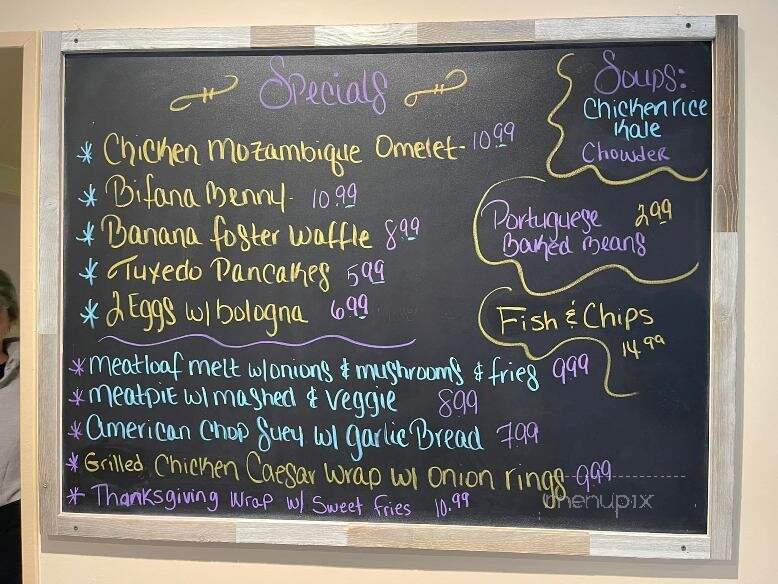 Specials
* Chicken Mozambique Omelet- 10.99
* Bifana Benny- 10.99
* Banana foster Waffle 8.99
* Tuxedo Pancakes 5.99
* 2 Eggs w/ bologna 6.99
* Meatloaf melt w/onions & mushrooms & fries 9.99
* Meatpie w/ mashed & veggie 8.99
* American Chop Suey w/ garlic Bread 7.99
* Grilled Chicken Caesar Wrap w/ Onion rings 9.99
* Thanksgiving Wrap w/ Sweet fries 10.99
Soups:
Chicken rice
Kale
Chowder
Portuguese 2.99
Baked Beans
Fish & Chips
14.99
menupix